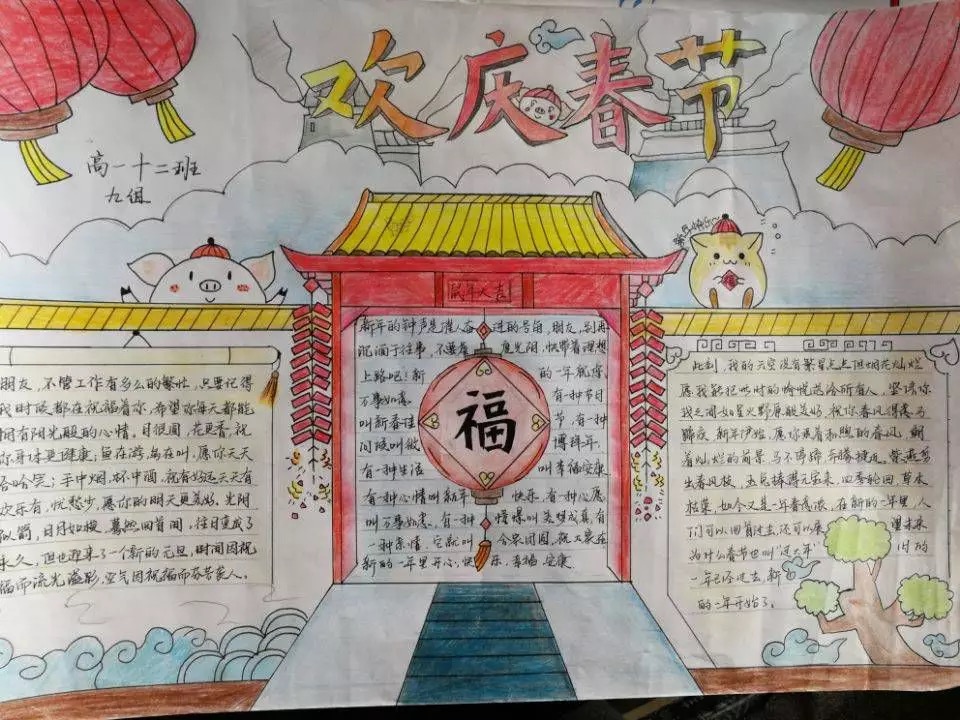 欢庆春节
高一十二班
九组
鼠年大吉
新年的钟声是催人奋进的号角,朋友,别再
沉湎于往事,不要辜 度光阴,快带着理想
上路吧!新 的一年祝你:
万事如意。 有种节目
叫新春佳 节,有一种
问候叫做 博拜年。
有一种生活 叫幸福安康
有一种心情叫新年 快乐,有一种心愿
叫万事如意,有一种 憧憬叫美梦成真,有
一种亲情,它就叫 合家团圆,祝大家在
新的一年里开心,快 乐,幸福,安康.
福
朋友,不管工作有多么的繁忙,只要记得
我时候都在祝福着你,希望你每天都能
拥有阳光般的心情。月很圆,花更香,祝
你身体更健康;鱼在游,鸟在叫,愿你天天
哈哈笑;手中烟,杯中酒,祝有好运天天有
欢乐有,忧愁少,愿你的明天更美好,光阴
似箭,日月如梭,蓦然回首间,往日变成了
永久,但也迎来了一个新的元旦,时间因祝
福而流光溢彩,空气因祝福而芬芳袭人。
此刻,我的天空没有繁星点点但烟花灿烂
愿我能把此时的愉悦送给所有人,坚读你
我之间如星火野原般美好,祝你春风得意马
蹄疾 新年伊始,愿你踩着和煦的春风,朝
着灿烂的前景 马不停蹄 奔腾捷况。紫燕剪
出春风枝,玉兔捧得元宝来,四季轮回,草木
枯荣,如今又是一年春意浓,在新的一年里,人
们可以回首过去,还可以来 望未来
为什么春节也叫"过大年" 时的
一年已经过去,新
的一年开始了。